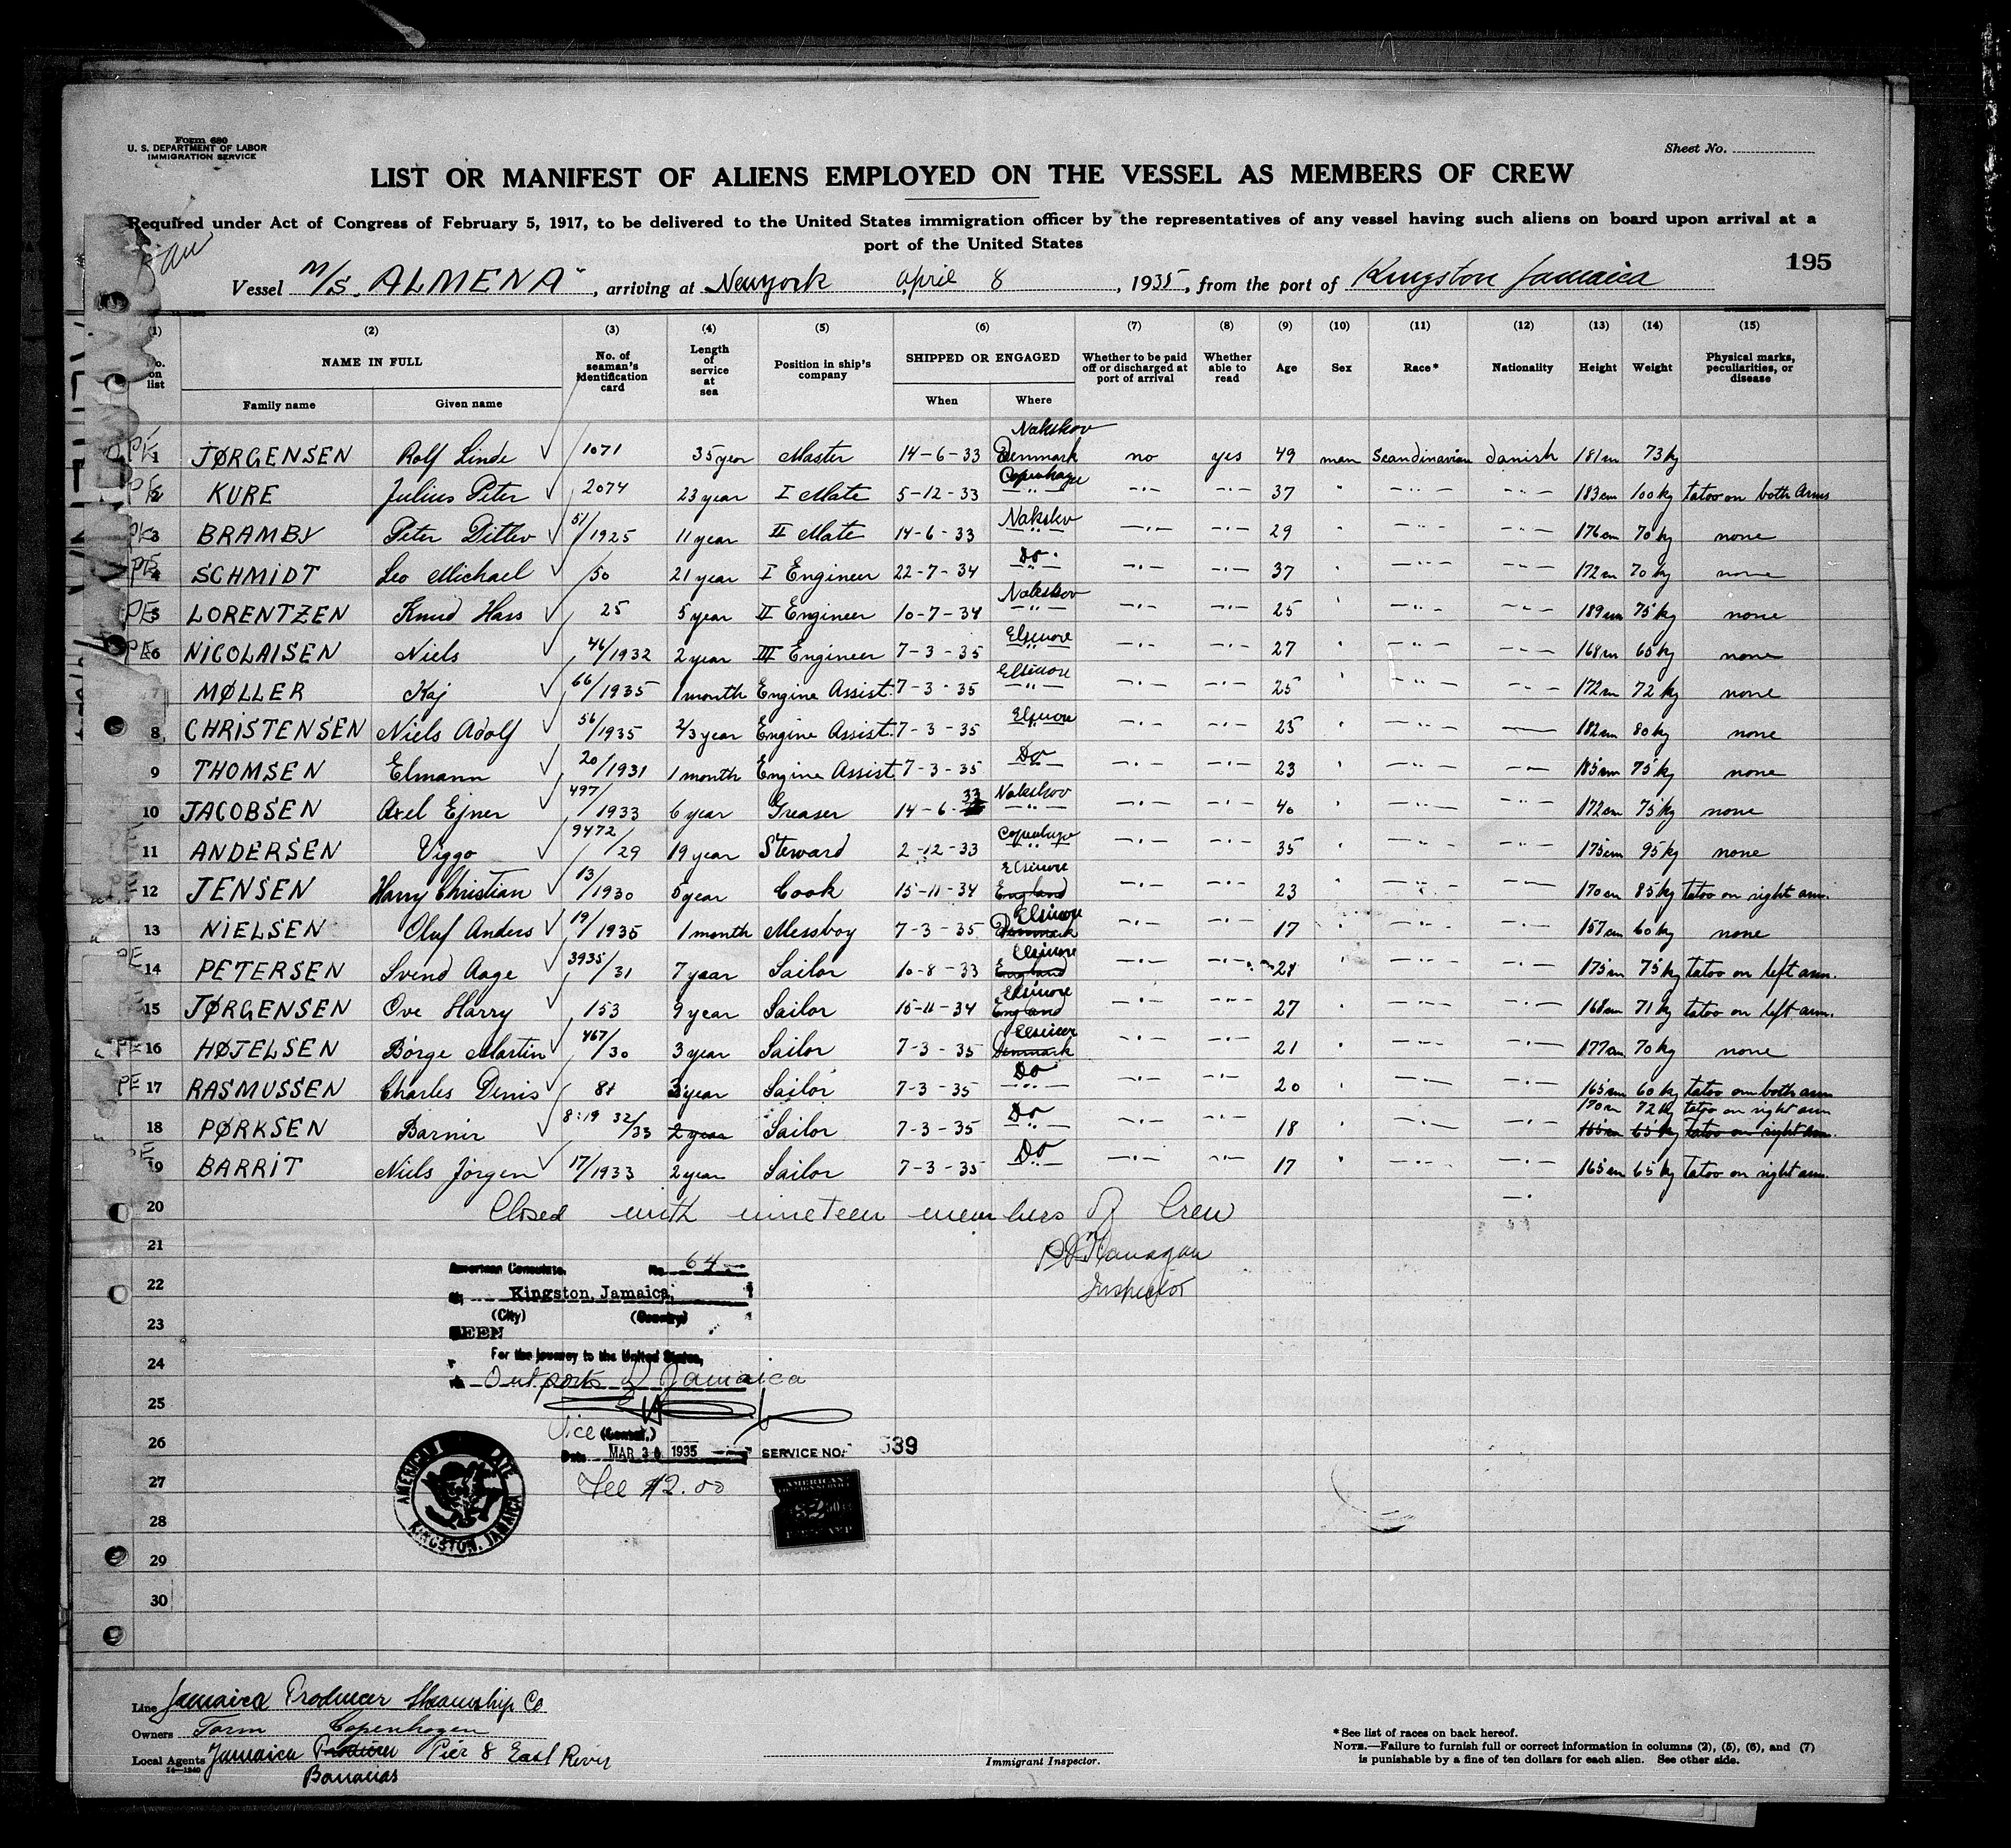 Form 680
U. S. DEPARTMENT OF LABOR
IMMIGRATION SERVICE
Sheet No.
LIST OR MANIFEST OF ALIENS EMPLOYED ON THE VESSEL AS MEMBERS OF CREW
Required under Act of Congress of February 5, 1917, to be delivered to the United States immigration officer by the representatives of any vessel having such aliens on board upon arrival at a
port of the United States
195
Vessel M/S. ALMENA, arriving at Newyork April 8, 1935, from the port of Kingston Jamaica
(1) (2) (3) (4) (5) (6) (7) (8) (9) (10) (11) (12) (13) (14) (15)
No. on list NAME IN FULL No. of seaman's identification card Length of service at sea Position in ship's company SHIPPED OR ENGAGED Whether to be paid off or discharged at port of arrival Whether able to read Age Sex Race* Nationality Height Weight Physical marks, peculiarities, or disease
Family name Given name When Where
PE 1 JØRGENSEN Rolf Linde 1071 35 year Master 14-6-33 Nakskov Denmark no yes 49 man Scandinavian Danish 181 cm 73 kg
PE 2 KURE Julius Peter 2074 23 year I Mate 5-12-33 Copenhagen 37 183 cm 100 kg tatoo on both Arms
PE 3 BRAMBY Peter Ditlev 51/1925 11 year II Mate 14-6-33 Nakskov 29 176 cm 70 kg none
PE 4 SCHMIDT Leo Michael 50 21 year I Engineer 22-7-34 Do 37 172 cm 70 kg none
PE 5 LORENTZEN Knud Hass 25 5 year II Engineer 10-7-34 Nakskov 25 189 cm 75 kg none
PE 6 NICOLAISEN Niels 46/1932 2 year III Engineer 7-3-35 Elsinore 27 168 cm 65 kg none
7 MØLLER Kaj 66/1935 1 month Engine Assist. 7-3-35 Elsinore 25 172 cm 72 kg none
8 CHRISTENSEN Niels Adolf 56/1935 2/3 year Engine Assist. 7-3-35 Elsinore 25 182 cm 80 kg none
9 THOMSEN Elmann 20/1931 1 month Engine Assist 7-3-35 Do 23 185 cm 75 kg none
10 JACOBSEN Axel Ejner 497/1933 6 year Greaser 14-6-33 Nakskov 40 172 cm 75 kg none
11 ANDERSEN Viggo 9472/29 19 year Steward 2-12-33 Copenhagen 35 175 cm 95 kg none
PE 12 JENSEN Harry Christian 13/1930 5 year Cook 15-11-34 Elsinore England 23 170 cm 85 kg tatoo on right arm.
13 NIELSEN Oluf Anders 19/1935 1 month Messboy 7-3-35 Elsinore Denmark 17 157 cm 60 kg none
PE 14 PETERSEN Svend Aage 3935/31 7 year Sailor 10-8-33 Elsinore England 175 cm 75 kg tatoo on left arm.
15 JØRGENSEN Ove Harry 153 9 year Sailor 15-11-34 Elsinore England 27 168 cm 71 kg tatoo on left arm.
PE 16 HØJELSEN Børge Martin 467/30 3 year Sailor 7-3-35 Elsinore Denmark 21 177 cm 70 kg none
PE 17 RASMUSSEN Charles Denis 81 3 year Sailor 7-3-35 Do 20 165 cm 60 kg tatoo on both arm
170 cm 72 kg tatoo on right arm
18 PØRKSEN Barnir 8:19 32/33 2 year Sailor 7-3-35 Do 18 165 cm 65 kg tatoo on right arm.
PE 19 BARRIT Niels Jörgen 17/1933 2 year Sailor 7-3-35 Do 17 165 cm 65 kg tatoo on right arm.
20 Closed with nineteen members of Crew
21 Flanagan
22 Inspector
23
24
25
26
27
28
29
30
American Consulate. No. 64
Kingston, Jamaica,
(City) (Country)
SEEN
For the journey to the United States,
Outports of Jamaica
Vice (Consul.)
Date MAR 30 1935 SERVICE NO. 539
Fee $2.00
AMERICAN
KINGSTON, JAMAICA
AMERICAN
$2
Line Jamaica Producer Steamship Co
Owners Torm Copenhagen
Local Agents Jamaica Producer Pier 8 East River
Bananas
14-1240
Immigrant Inspector.
*See list of races on back hereof.
NOTE.—Failure to furnish full or correct information in columns (2), (5), (6), and (7)
is punishable by a fine of ten dollars for each alien. See other side.